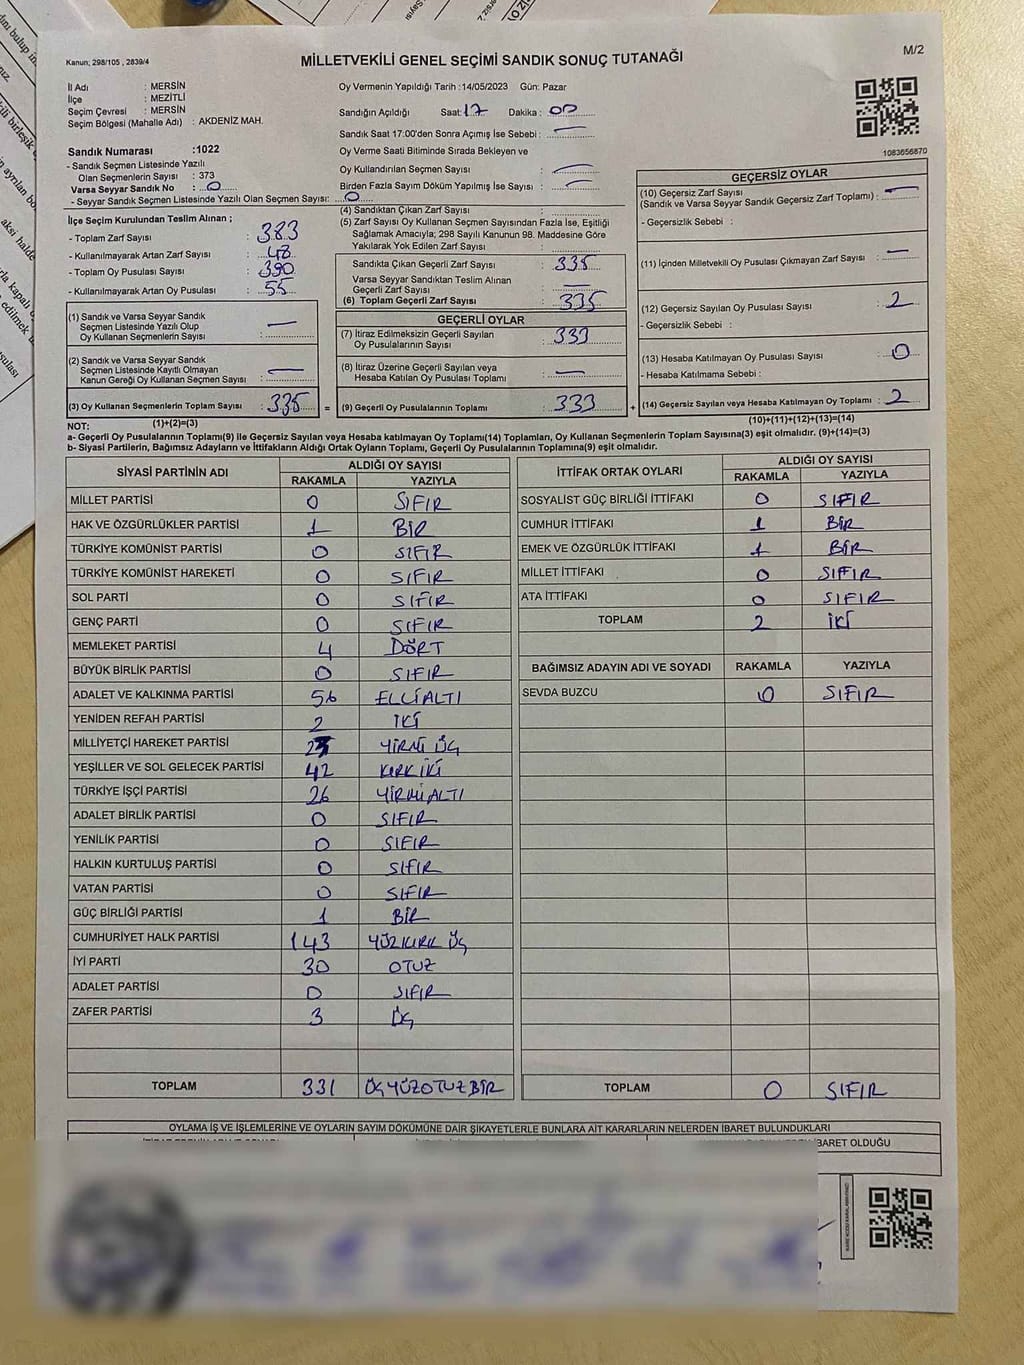 Kanun; 298/105 , 2839/4
MİLLETVEKİLİ GENEL SEÇİMİ SANDIK SONUÇ TUTANAĞI
M/2
İl Adı : MERSİN
İlçe : MEZİTLİ
Seçim Çevresi : MERSİN
Seçim Bölgesi (Mahalle Adı) : AKDENİZ MAH.
Oy Vermenin Yapıldığı Tarih :14/05/2023 Gün: Pazar
Sandığın Açıldığı Saat: 17 Dakika : 00
Sandık Saat 17:00'den Sonra Açımış İse Sebebi : —
Oy Verme Saati Bitiminde Sırada Bekleyen ve
Oy Kullandırılan Seçmen Sayısı : —
Birden Fazla Sayım Döküm Yapılmış İse Sayısı : —
1083656870
Sandık Numarası :1022
- Sandık Seçmen Listesinde Yazılı
Olan Seçmenlerin Sayısı : 373
Varsa Seyyar Sandık No : 0
- Seyyar Sandık Seçmen Listesinde Yazılı Olan Seçmen Sayısı: 0
İlçe Seçim Kurulundan Teslim Alınan ;
- Toplam Zarf Sayısı : 383
- Kullanılmayarak Artan Zarf Sayısı : 48
- Toplam Oy Pusulası Sayısı : 390
- Kullanılmayarak Artan Oy Pusulası : 55
(1) Sandık ve Varsa Seyyar Sandık
Seçmen Listesinde Yazılı Olup
Oy Kullanan Seçmenlerin Sayısı : —
(2) Sandık ve Varsa Seyyar Sandık
Seçmen Listesinde Kayıtlı Olmayan
Kanun Gereği Oy Kullanan Seçmen Sayısı : —
(3) Oy Kullanan Seçmenlerin Toplam Sayısı : 335 =
(1)+(2)=(3)
(4) Sandıktan Çıkan Zarf Sayısı :
(5) Zarf Sayısı Oy Kullanan Seçmen Sayısından Fazla İse, Eşitliği
Sağlamak Amacıyla; 298 Sayılı Kanunun 98. Maddesine Göre
Yakılarak Yok Edilen Zarf Sayısı :
Sandıkta Çıkan Geçerli Zarf Sayısı : 335
Varsa Seyyar Sandıktan Teslim Alınan
Geçerli Zarf Sayısı : —
(6) Toplam Geçerli Zarf Sayısı : 335
GEÇERLİ OYLAR
(7) İtiraz Edilmeksizin Geçerli Sayılan
Oy Pusulalarının Sayısı : 333
(8) İtiraz Üzerine Geçerli Sayılan veya
Hesaba Katılan Oy Pusulası Toplamı : —
(9) Geçerli Oy Pusulalarının Toplamı : 333 +
GEÇERSİZ OYLAR
(10) Geçersiz Zarf Sayısı
(Sandık ve Varsa Seyyar Sandık Geçersiz Zarf Toplamı) : —
- Geçersizlik Sebebi :
(11) İçinden Milletvekili Oy Pusulası Çıkmayan Zarf Sayısı : —
(12) Geçersiz Sayılan Oy Pusulası Sayısı : 2
- Geçersizlik Sebebi :
(13) Hesaba Katılmayan Oy Pusulası Sayısı : 0
- Hesaba Katılmama Sebebi :
(14) Geçersiz Sayılan veya Hesaba Katılmayan Oy Toplamı : 2
(10)+(11)+(12)+(13)=(14)
NOT:
a- Geçerli Oy Pusulalarının Toplamı(9) ile Geçersiz Sayılan veya Hesaba katılmayan Oy Toplamı(14) Toplamları, Oy Kullanan Seçmenlerin Toplam Sayısına(3) eşit olmalıdır. (9)+(14)=(3)
b- Siyasi Partilerin, Bağımsız Adayların ve İttifakların Aldığı Ortak Oyların Toplamı, Geçerli Oy Pusulalarının Toplamına(9) eşit olmalıdır.
SİYASİ PARTİNİN ADI ALDIĞI OY SAYISI
RAKAMLA YAZIYLA
MİLLET PARTİSİ 0 SIFIR
HAK VE ÖZGÜRLÜKLER PARTİSİ 1 BİR
TÜRKİYE KOMÜNİST PARTİSİ 0 SIFIR
TÜRKİYE KOMÜNİST HAREKETİ 0 SIFIR
SOL PARTİ 0 SIFIR
GENÇ PARTİ 0 SIFIR
MEMLEKET PARTİSİ 4 DÖRT
BÜYÜK BİRLİK PARTİSİ 0 SIFIR
ADALET VE KALKINMA PARTİSİ 56 ELLİALTI
YENİDEN REFAH PARTİSİ 2 İKİ
MİLLİYETÇİ HAREKET PARTİSİ 23 YİRMİ ÜÇ
YEŞİLLER VE SOL GELECEK PARTİSİ 42 KIRK İKİ
TÜRKİYE İŞÇİ PARTİSİ 26 YİRMİALTI
ADALET BİRLİK PARTİSİ 0 SIFIR
YENİLİK PARTİSİ 0 SIFIR
HALKIN KURTULUŞ PARTİSİ 0 SIFIR
VATAN PARTİSİ 0 SIFIR
GÜÇ BİRLİĞİ PARTİSİ 1 BİR
CUMHURİYET HALK PARTİSİ 143 YÜZKIRK ÜÇ
İYİ PARTİ 30 OTUZ
ADALET PARTİSİ 0 SIFIR
ZAFER PARTİSİ 3 ÜÇ
TOPLAM 331 ÜÇYÜZOTUZBİR
İTTİFAK ORTAK OYLARI ALDIĞI OY SAYISI
RAKAMLA YAZIYLA
SOSYALİST GÜÇ BİRLİĞİ İTTİFAKI 0 SIFIR
CUMHUR İTTİFAKI 1 BİR
EMEK VE ÖZGÜRLÜK İTTİFAKI 1 BİR
MİLLET İTTİFAKI 0 SIFIR
ATA İTTİFAKI 0 SIFIR
TOPLAM 2 İKİ
BAĞIMSIZ ADAYIN ADI VE SOYADI RAKAMLA YAZIYLA
SEVDA BUZCU 0 SIFIR
TOPLAM 0 SIFIR
OYLAMA İŞ VE İŞLEMLERİNE VE OYLARIN SAYIM DÖKÜMÜNE DAİR ŞİKAYETLERLE BUNLARA AİT KARARLARIN NELERDEN İBARET BULUNDUKLARI
İBARET OLDUĞU